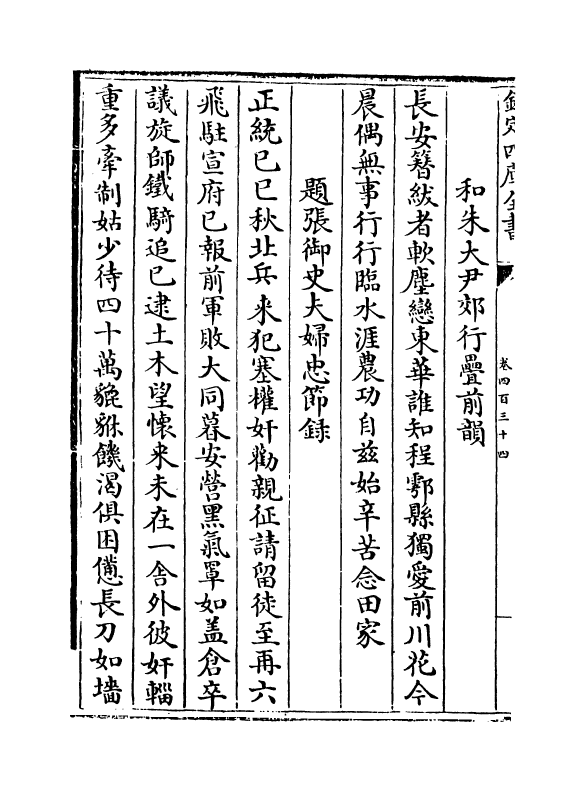 欽定四庫全書
卷四百三十四
和朱大尹郊行疊前韻
長安簪紱者軟塵戀東華誰知程鄠縣獨愛前川花今
晨偶無事行行臨水涯農功自兹始辛苦念田家
題張御史夫婦忠節録
正統己巳秋北兵来犯塞權奸勸親征請留徒至再六
飛駐宣府已報前軍敗大同暮安營黑氣罩如盖倉卒
議旋師鐵騎追已逮土木望懷来未在一舎外彼奸輜
重多牽制姑少待四十萬貔貅饑渴俱困憊長刀如墻